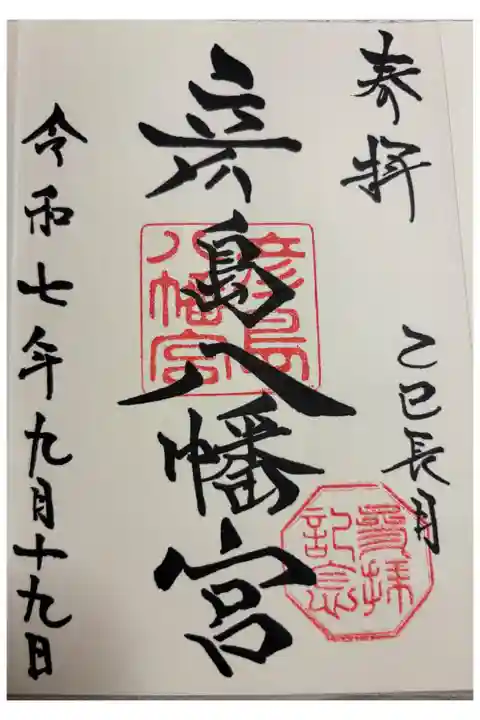 奉拝
乙巳長月
彦島八幡宮
彦島八幡宮
参拝記念
令和七年九月十九日